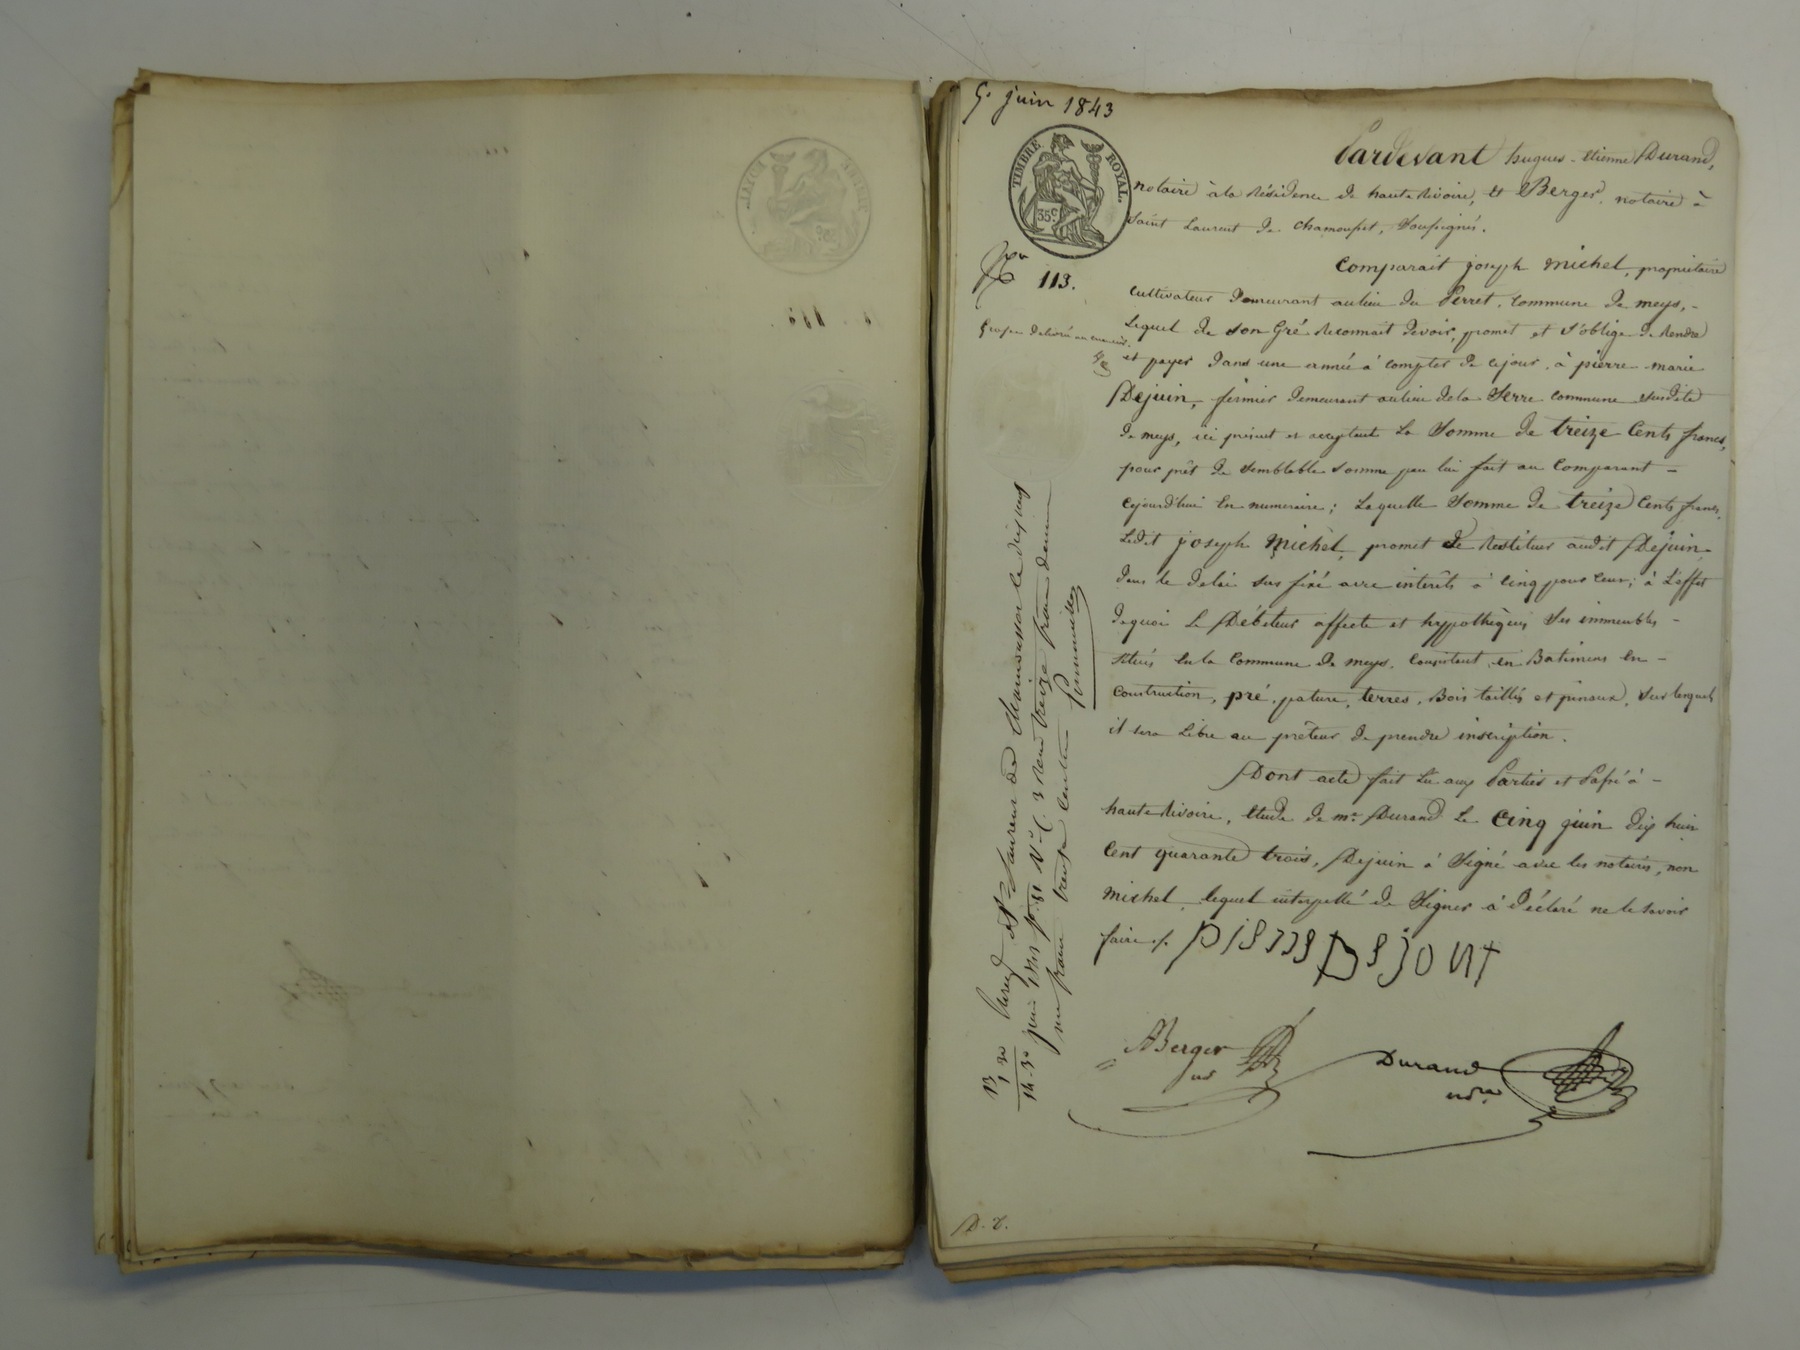 5. juin 1843
TIMBRE ROYAL
35 c.
Pardevant hugues-etienne Durand,
notaire à la Résidence de haute Rivoire, et Berger, notaire à
Saint Laurent de Chamousset, Soussignés.
No 113.
Comparait joseph michel, propriétaire
Cultivateur Demeurant au lieu du Perret, Commune de meys, -
Lequel de Son Gré Reconnait devoir, promet et S'oblige de Rendre
Grosse délivrée au créancier.
et payer Dans une année à compter de ce jour, à pierre-marie
Dejuin, fermier Demeurant au lieu de la Serre commune Susdite
de meys, ici présent et acceptant La Somme De treize Cents francs,
pour prêt de Semblable Somme par lui fait au Comparant -
Cejourd'hui En numeraire; Laquelle Somme De treize Cents francs,
Ledit joseph Michel, promet de Restituer audit Dejuin
dans le Délai Sus fixé avec interêts à Cinq pour Cent; à L'effet
de quoi Le Débiteur affecte et hypothèque Ses immeubles -
Situés En la Commune de meys, Consistant en Batimens En -
Construction, pré, pature, terres, Bois taillis et pinaux, Sur lesquels
il sera Libre au prêteur de prendre inscription.
Dont acte fait Lu aux Parties et Passé à -
haute Rivoire, Etude de me Durand Le Cinq juin dix huit
Cent quarante trois, Dejuin à Signé avec les notaires, non
Michel, lequel interpellé de Signer à Déclaré ne le Savoir
faire ./.
Berger
nre
Durand
nore
Enreg. à St Laurent de Chamousset le dix sept
juin 1843 fo. 81 Vo C. 3 Reçu treize francs decime
un franc trente centimes
13,
1,30
14.30
D. D.